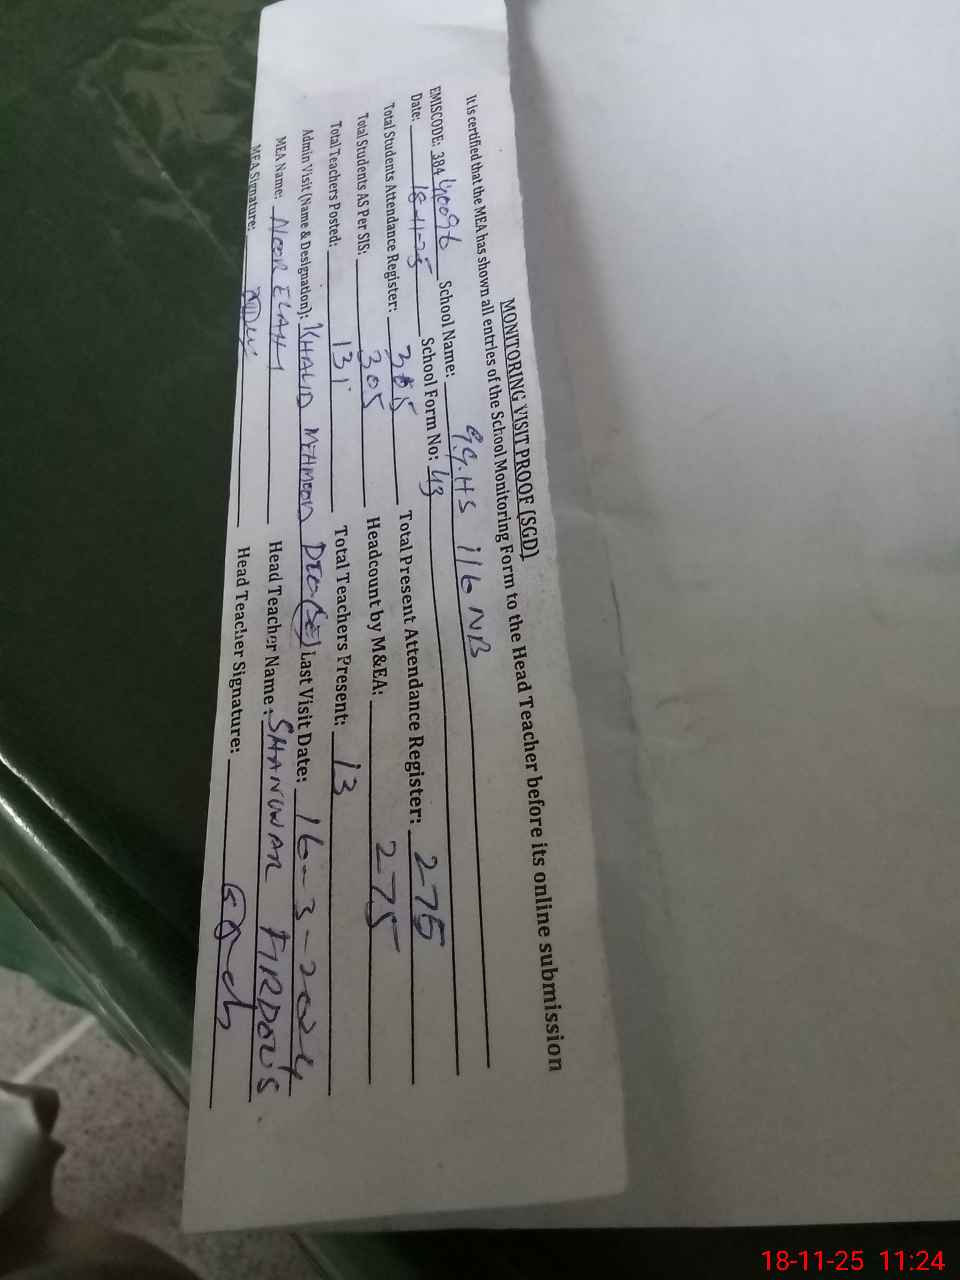 MONITORING VISIT PROOF (SGD)
It is certified that the MEA has shown all entries of the School Monitoring Form to the Head Teacher before its online submission
EMISCODE: 38440096 School Name: G.G.HS 116 NB
Date: 18-11-25 School Form No: 43
Total Students Attendance Register: 305 Total Present Attendance Register: 275
Total Students AS Per SIS: 305 Headcount by M&EA: 275
Total Teachers Posted: 13 Total Teachers Present: 13
Admin Visit (Name & Designation): KHALID MEHMOOD DEO(SE) Last Visit Date: 16-3-2024
MEA Name: NOOR ELAHI Head Teacher Name: SHANUWAR FIRDOUS
MEA Signature: Head Teacher Signature:
18-11-25 11:24